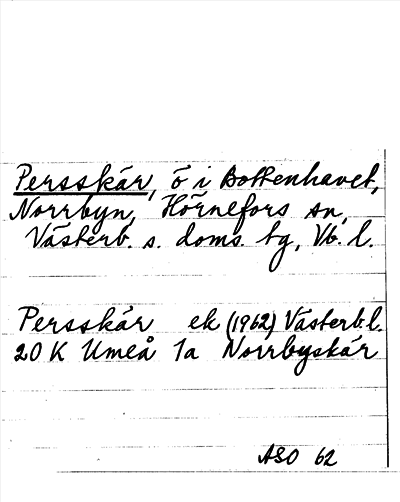 Persskär, ö i Bottenhavet,
Norrbyn, Hörnefors sn,
Västerb. s. doms. tg, Vb. l.
Persskär ek (1962) Västerb.l.
20 K Umeå 1a Norrbyskär
ASO 62